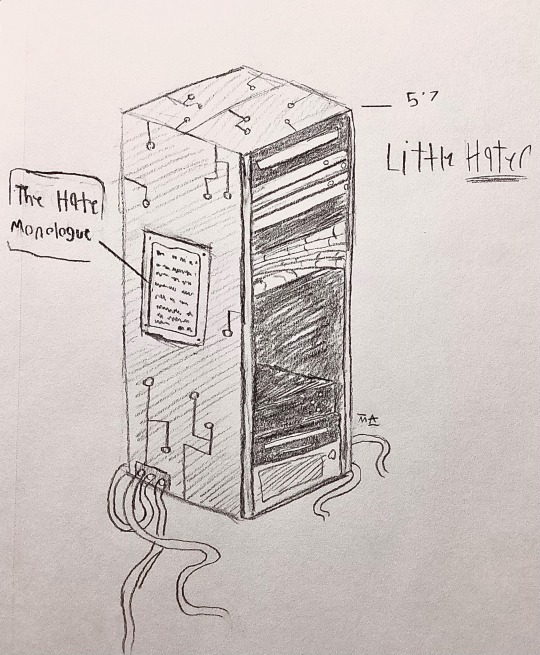 5'7
Little Hater
The Hate
Monologue
MA